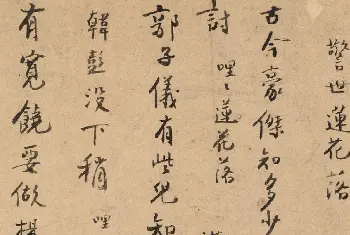 警世蓮花落
古今豪傑知多少
討 哩〻蓮花落
郭子儀有些兒知
韓彭没下稍 哩
有寬饒要做